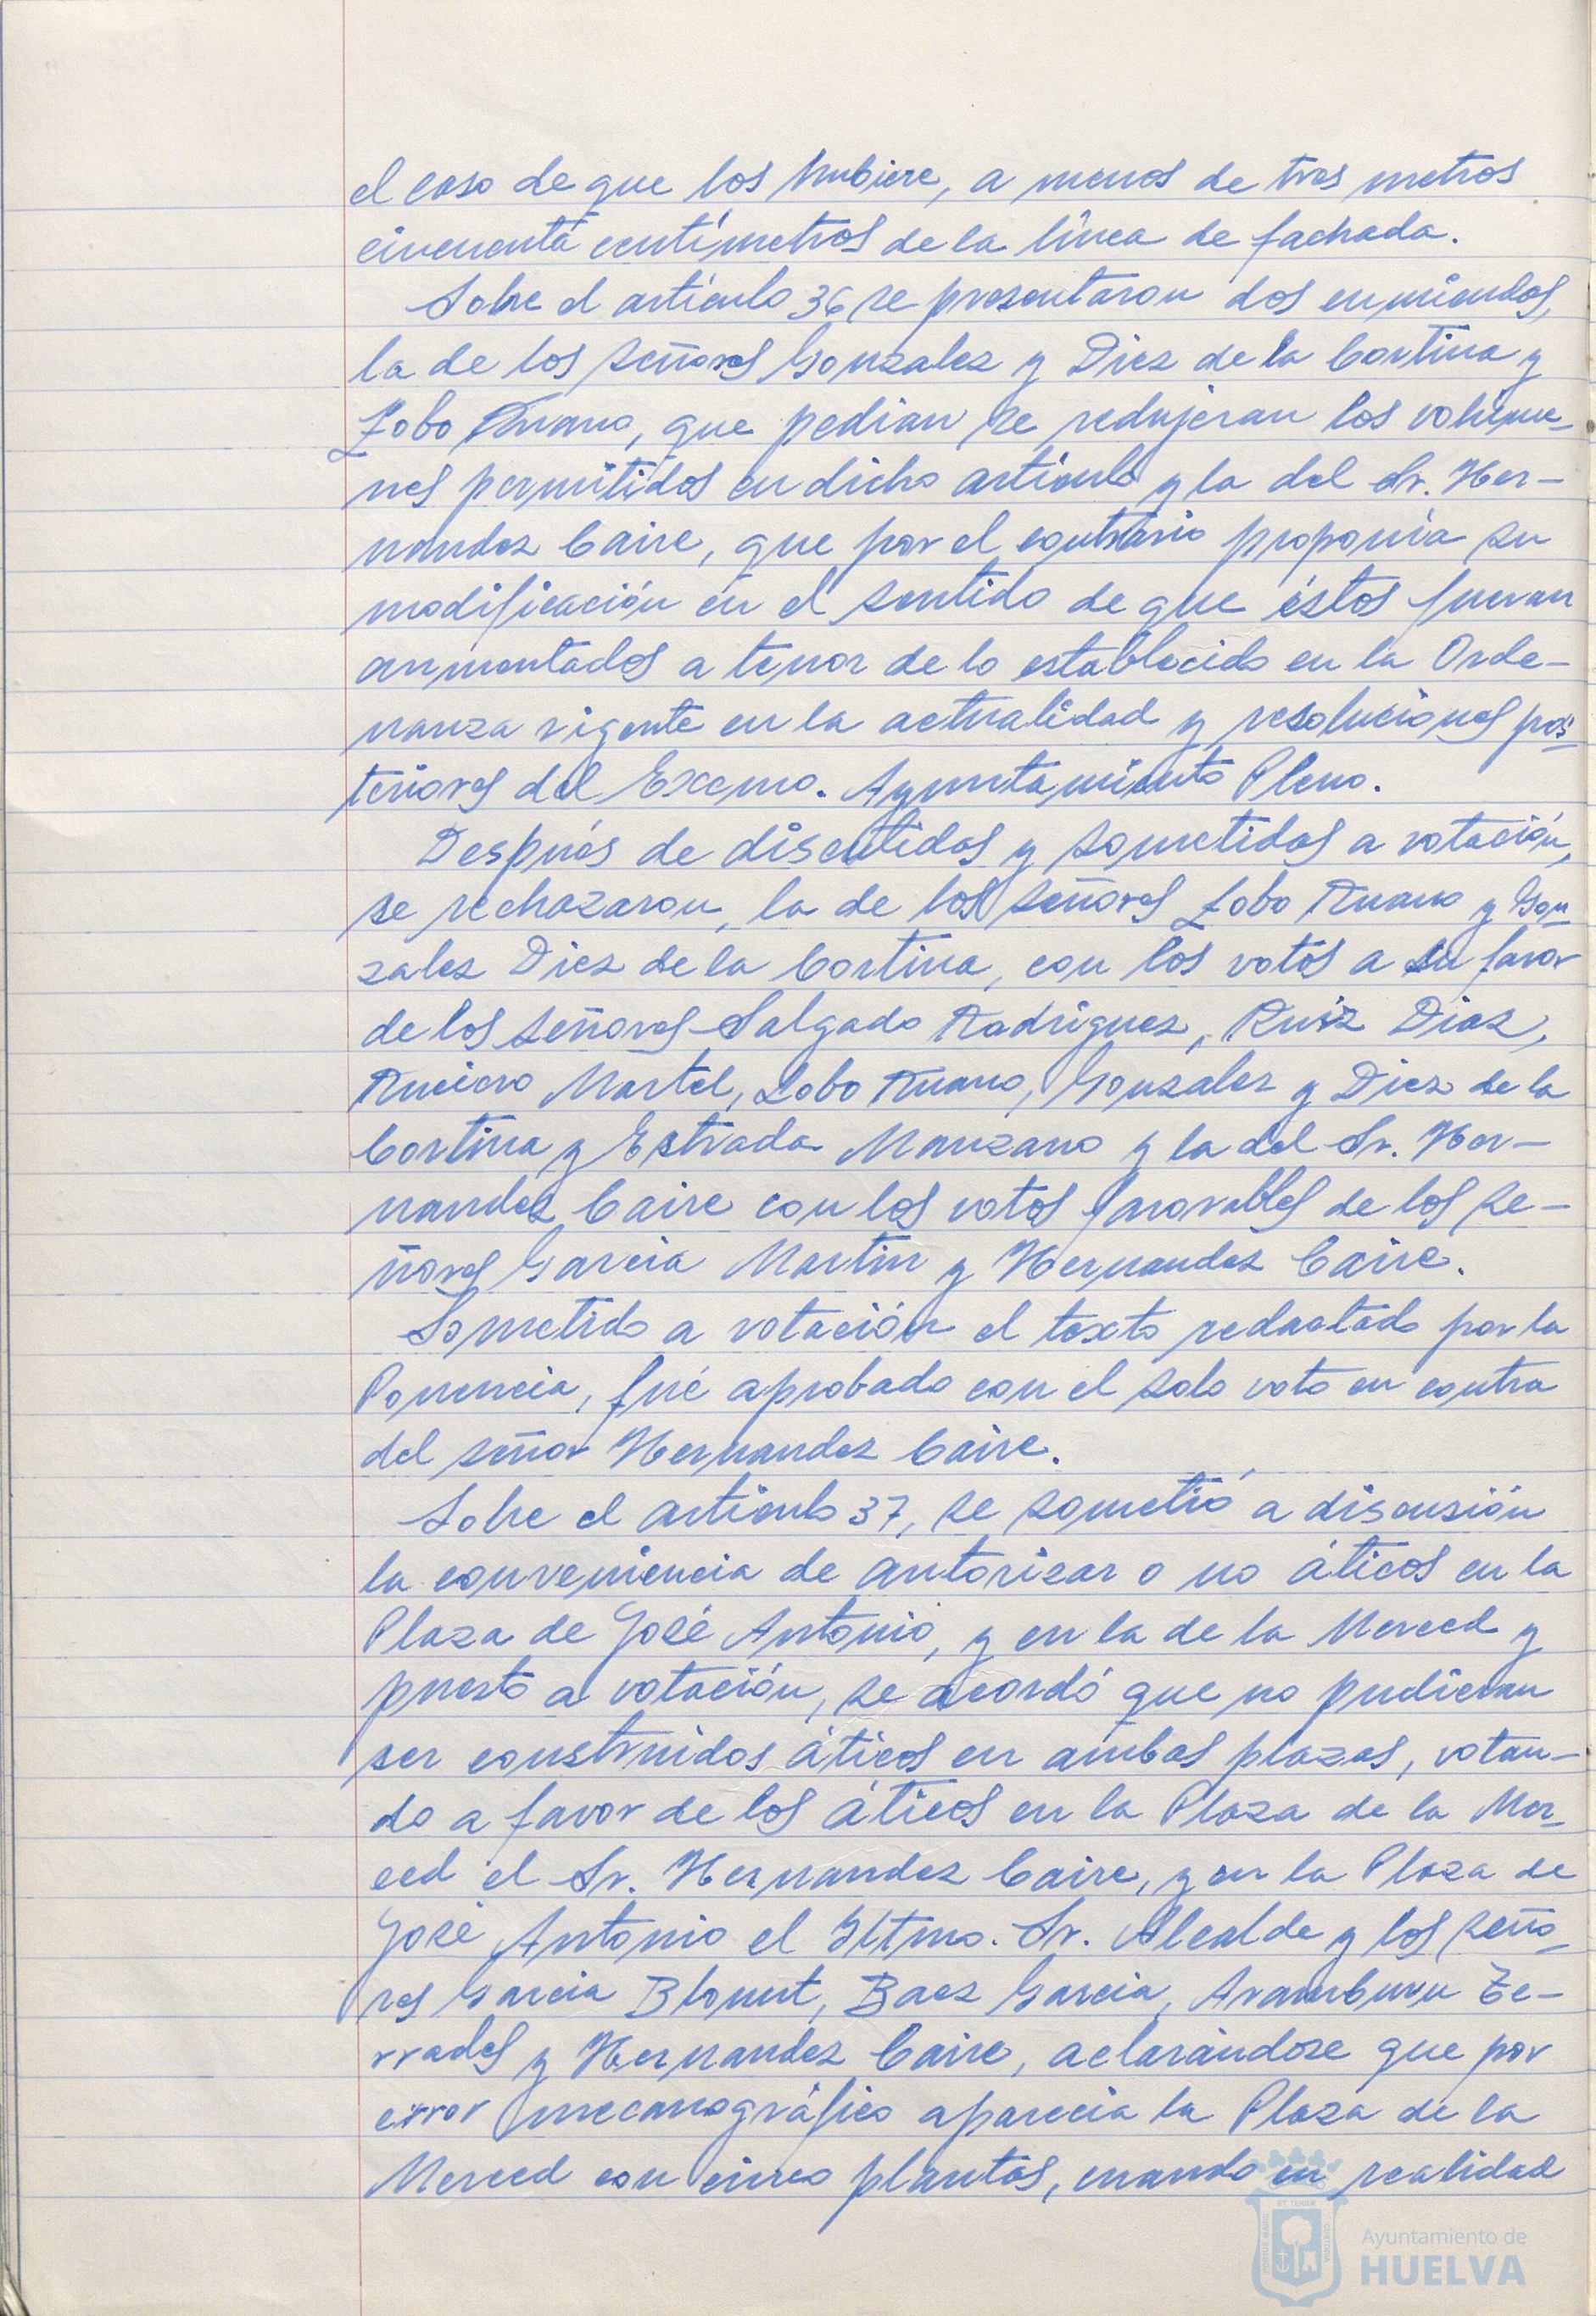 el caso de que los hubiere, a menos de tres metros
cincuenta centímetros de la línea de fachada.
Sobre el artículo 36 se presentaron dos enmiendas,
la de los señores Gonzalez y Diez de la Cortina y
Lobo Ruano, que pedian se redujeran los volúme-
nes permitidos en dicho artículo y la del Sr. Her-
nandez Caire, que por el contrario proponía su
modificación en el sentido de que éstos fueran
aumentados a tenor de lo establecido en la Orde-
nanza vigente en la actualidad y resoluciones pos-
teriores del Excmo. Ayuntamiento Pleno.
Después de discutidas y sometidas a votación,
se rechazaron, la de los señores Lobo Ruano y Gon-
zalez Diez de la Cortina, con los votos a su favor
de los señores Salgado Rodriguez, Ruiz Diaz,
Martel, Lobo Ruano, Gonzalez y Diez de la
Cortina y Estrada Manzano y la del Sr. Her-
nandez Caire con los votos favorables de los se-
ñores Garcia Martin y Hernandez Caire.
Sometido a votación el texto redactado por la
Ponencia, fué aprobado con el solo voto en contra
del señor Hernandez Caire.
Sobre el artículo 37, se sometió a discusión
la conveniencia de autorizar o no áticos en la
Plaza de José Antonio, y en la de la Merced y
puesto a votación, se acordó que no pudieran
ser construidos áticos en ambas plazas, votan-
do a favor de los áticos en la Plaza de la Mer-
ced el Sr. Hernandez Caire, y en la Plaza de
José Antonio el Iltmo. Sr. Alcalde y los seño-
res Garcia Blount, Baez Garcia, Aramburu Te-
rrades y Hernandez Caire, aclarándose que por
error mecanográfico aparecia la Plaza de la
Merced con cinco plantas, cuando en realidad
PORTUS MARIS ET TERRAE CUSTODIA
Ayuntamiento de
HUELVA